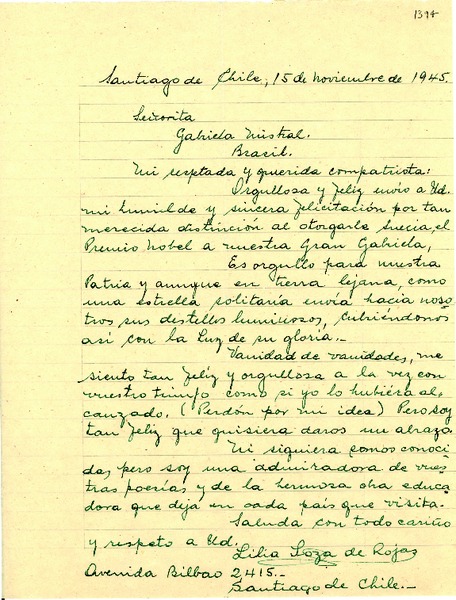 1394
Santiago de Chile, 15 de noviembre de 1945.
Señorita
Gabriela Mistral.
Brasil.
Mi respetada y querida compatriota:
Orgullosa y feliz envío a Ud.
mi humilde y sincera felicitación por tan
merecida distinción al otorgarle Suecia, el
Premio Nobel a nuestra Gran Gabriela,
Es orgullo para nuestra
Patria y aunque en tierra lejana, como
una estrella solitaria envía hacia noso
tros sus destellos luminosos, cubriéndonos
así con la Luz de su gloria.-
Vanidad de vanidades, me
siento tan feliz y orgullosa a la vez con
vuestro triunfo como si yo lo hubiera al
canzado. (Perdón por mi idea) Pero soy
tan feliz que quisiera daros un abrazo
Ni siquiera somos conoci
das, pero soy una admiradora de vues
tras poesías y de la hermosa obra educa
dora que deja en cada país que visita.
Saluda con todo cariño
y respeto a Ud.
Lilia Loza de Rojas
Avenida Bilbao 2415.-
Santiago de Chile.-